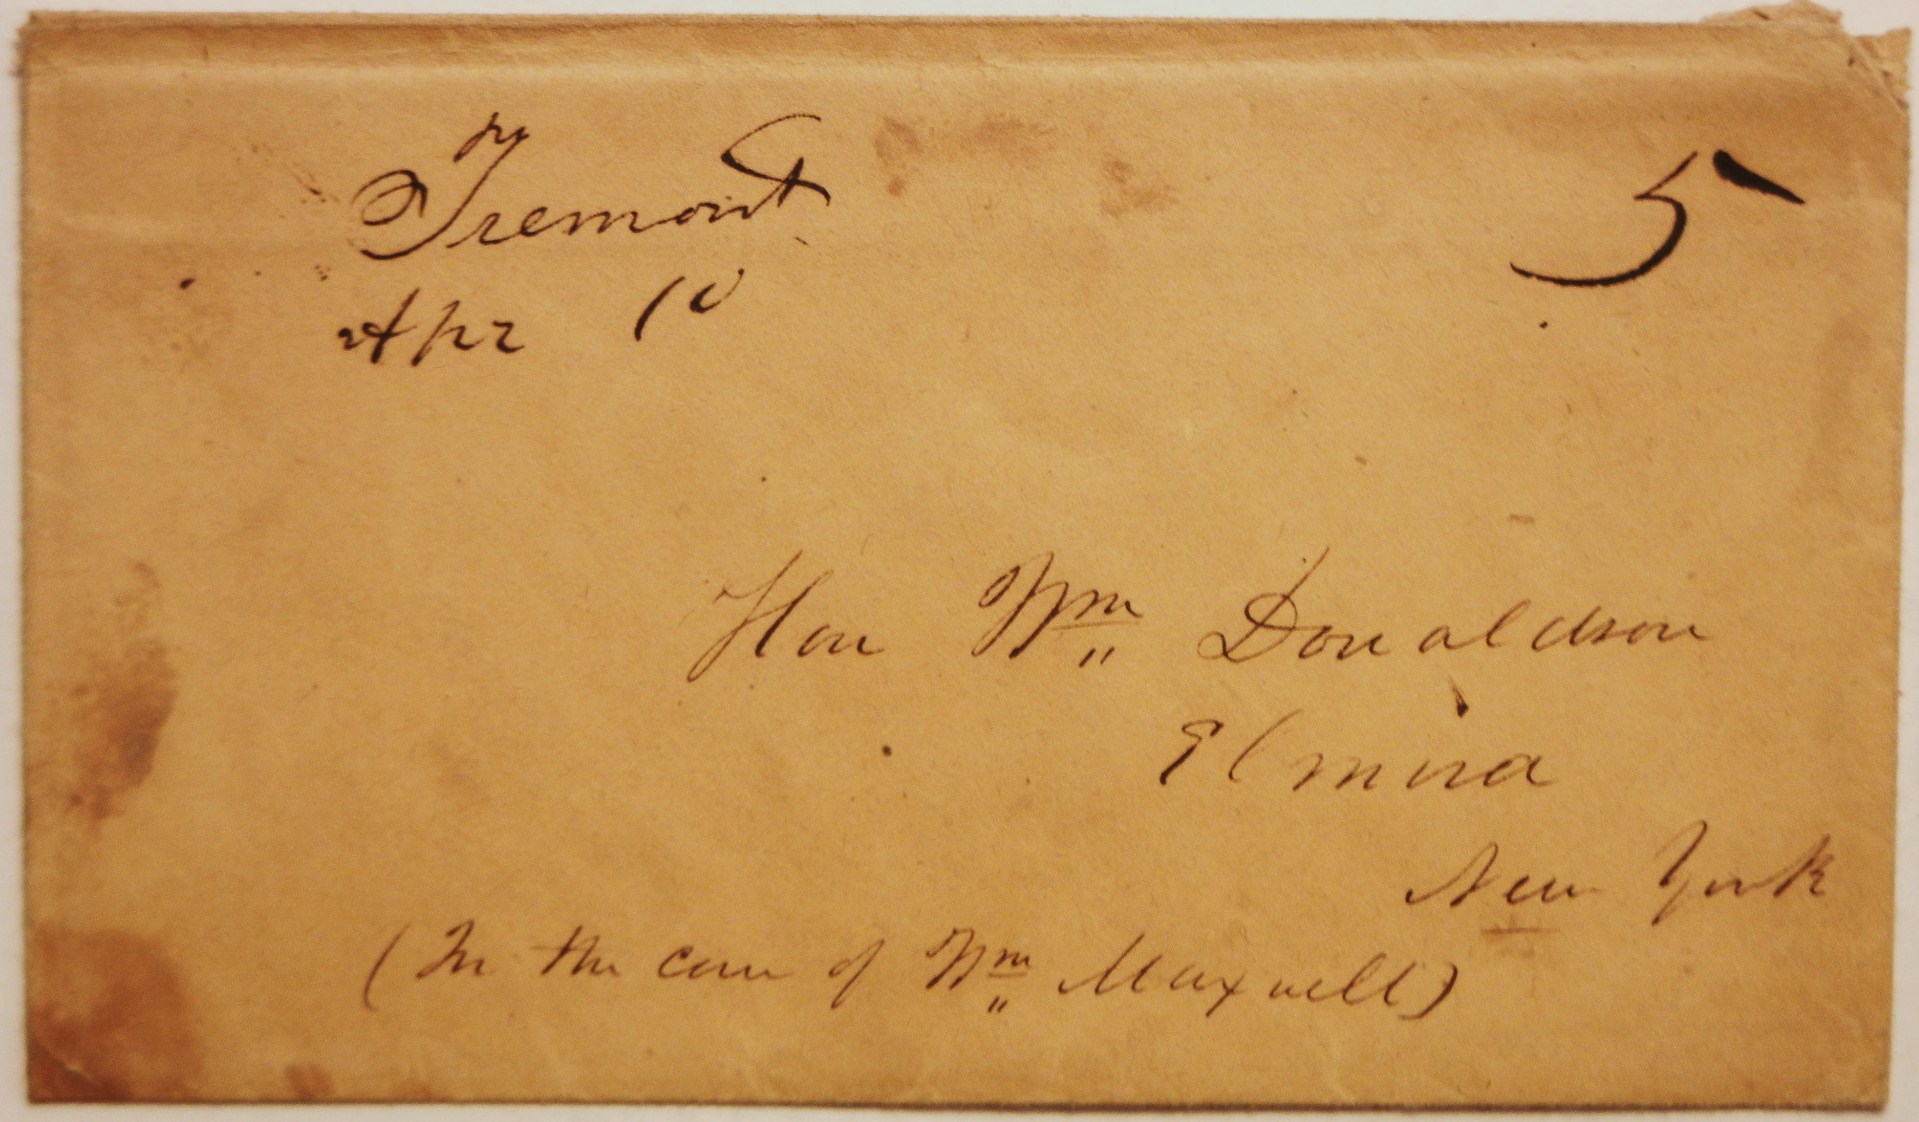 Tremont
5
Apr 10
Hon Wm Donaldson
Elmira
New York
(In the care of Wm Maxwell)